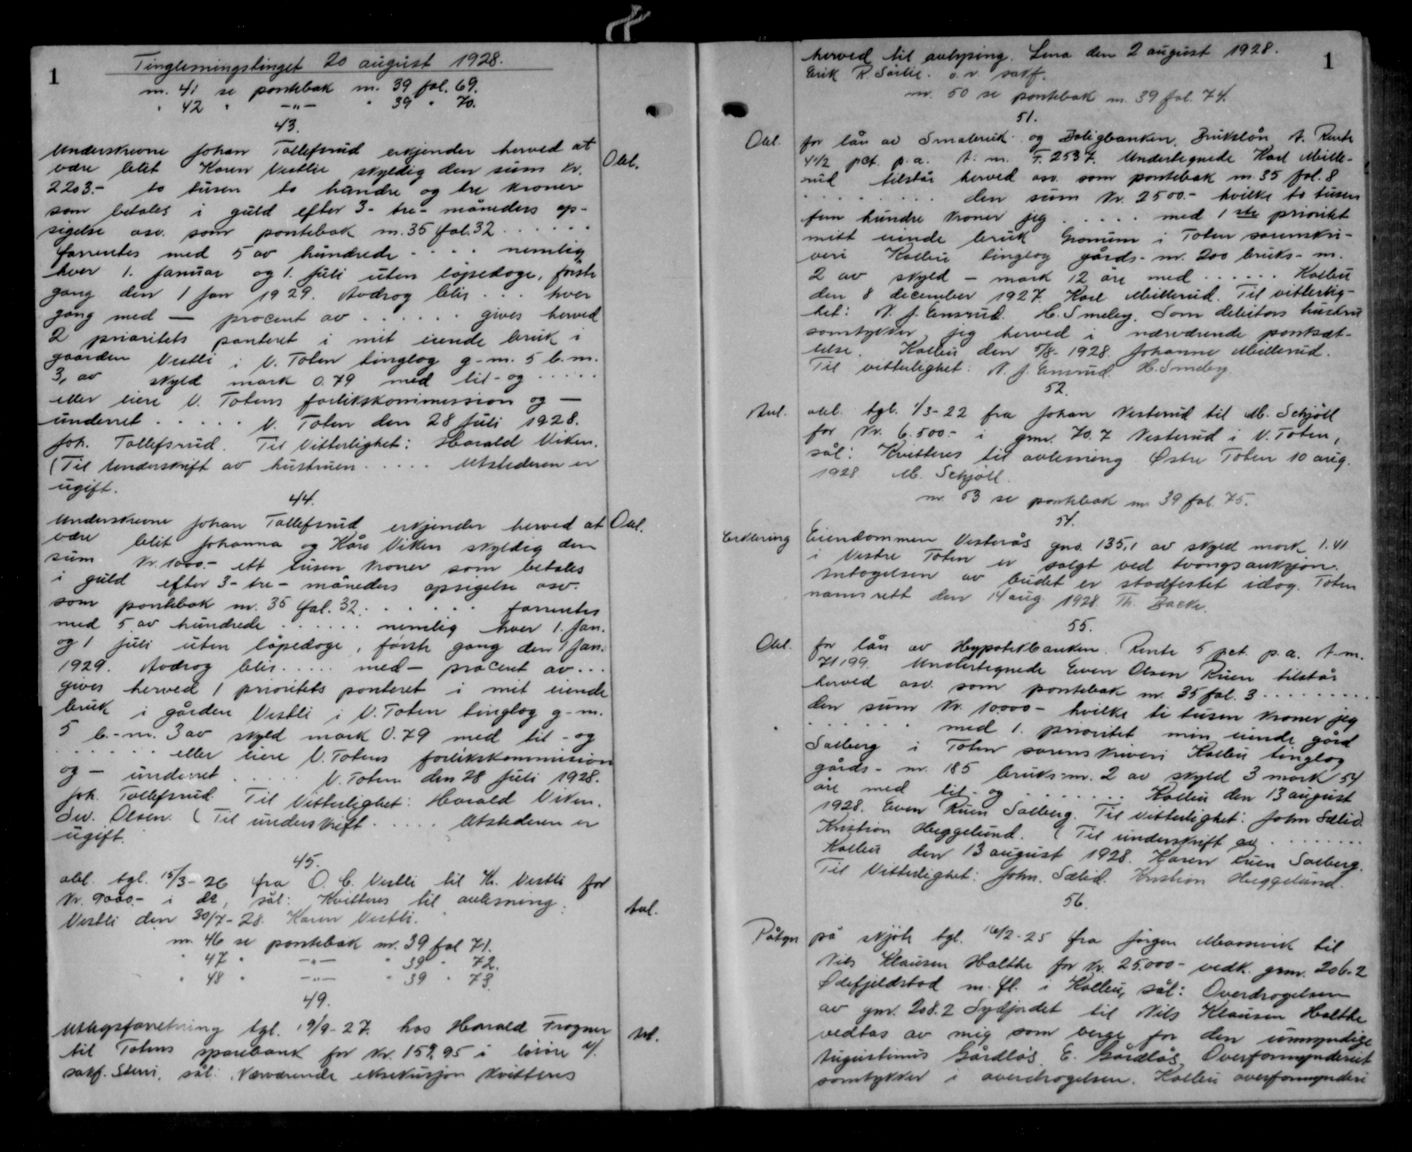 1
Tinglesningstinget 20 august 1928.
nr. 41 se pantebok nr. 39 fol. 69.
" 42 " -"- " 39 " 70.
43.
Underskrevne Johan Tollefsrud erkjender herved at
være blit Karen Vestli skyldig den sum kr.
2203.- to tusen to hundre og tre kroner
som betales i guld efter 3- tre- måneders op-
sigelse osv. som pantebok nr. 35 fol. 32 ......
forrentes med 5 av hundrede ... nemlig
hver 1. januar og 1. juli uten løpedage, første
gang den 1 jan 1929. Avdrag blir ... hver
gang med — procent av ...... gives herved
2 prioritets panteret i mit eiende bruk i
gaarden Vestli i V. Toten tinglag g-nr. 5 b.nr.
3, av skyld mark 0.79 med til- og .....
eller eiere V. Totens forlikskommission og —
underret ..... V. Toten den 28 juli 1928.
Joh. Tollefsrud. Til Vitterlighet: Harald Viken.
(Til Underskrift av hustruen ..... Utstederen er
ugift.
Obl.
44.
Underskrevne Johan Tollefsrud erkjender herved at
være blit Johanna og Kåre Viken skyldig den
sum kr. 1000.- ett tusen kroner som betales
i guld efter 3- tre- måneders opsigelse osv.
som pantebok nr. 35 fol. 32 ....... forrentes
med 5 av hundrede ...... nemlig hver 1. jan.
og 1 juli uten løpedage, første gang den 1 jan.
1929. Avdrag blir ..... med — procent av ...
gives herved 1 prioritets panteret i mit eiende
bruk i gården Vestli i V. Toten tinglag g-nr.
5 b-nr. 3 av skyld mark 0.79 med til- og
....... eller eiere V. Totens forlikskommission
og — underret ..... V. Toten den 28 juli 1928.
Joh. Tollefsrud. Til Vitterlighet: Harald Viken.
Olsen. (Til underskrift ..... Utstederen er
ugift.
Obl.
45.
obl. tgl. 15/3-26 fra O. C. Vestli til K. Vestli for
kr. 9000.- i sål: Kvitteres til avlesning.
Vestli den 30/7-28. Karen Vestli.
Avl.
nr. 46 se pantebok nr. 39 fol 71.
" 47 " -"- " 39 " 72.
" 48 " -"- " 39 " 73.
49.
Utlægsforretning tgl. 19/9-27. hos Harald Frogner
til Totens sparebank for kr. 159.95 i løsøre
saxf. sål: Nærværende eksekusjon kvitteres
1
herved til avlysing. Lena den 2 august 1928.
Erik R Sørlie. o. r. saxf.
nr. 50 se pantebok nr. 39 fol. 74.
51.
Obl.
for lån av Småbruk og Boligbanken. Brukslån A. Rente
4 1/2 pct. p.a. A. nr. F. 2537. Undertegnede Karl Mille-
rud tilstår herved osv. som pantebok nr 35 fol. 8
....... den sum kr. 2500.- hvilke to tusen
fem hundre kroner jeg ..... med 1ste prioritet
mitt eiende bruk i Toten sorenskri-
veri Kolbu tinglag gårds- nr. 200 bruks- nr.
2 av skyld - mark 12 øre med ...... Kolbu
den 8 december 1927. Karl Millerud. Til vitterlig-
het: N. J. H. Smeby. Som debitors hustru
samtykker jeg herved i nærværende pantsæt-
telse. Kolbu den 5/8-1928. Johanne Millerud.
Til vitterlighet: N. J. H. Smeby.
52.
Avl.
obl. tgl. 1/3-22 fra Johan Vesterud til M. Schjöll
for kr. 6.500.- i gnr. 70.7 Vesterud i V. Toten,
sål: Kvitteres til avlesning. Østre Toten 10 aug.
1928 M. Schjöll.
nr. 53 se pantebok nr 39 fol. 75.
54.
Erklæring
Eiendommen Vesterås gno. 135,1 av skyld mark 1.41
i Vestre Toten er solgt ved tvangsauksjon.
Antagelsen av budet er stadfestet idag. Toten
namsrett den 14 aug 1928. Th. Bache.
55.
Obl.
for lån av Hypotekbanken. Rente 5 pct p.a. A. nr.
71199. Undertegnede Even Olsen Ruen tilstår
herved osv. som pantebok nr. 35 fol. 3 ........
den sum kr. 10000.- hvilke ti tusen kroner jeg
....... med 1. prioritet min eiende gård
Solberg i Toten sorenskriveri Kolbu tinglag
gårds- nr. 185 bruks- nr. 2 av skyld 3 mark 54
øre med til- og ....... Kolbu den 13 august
1928. Even Ruen Solberg. Til Vitterlighet: John Sælid.
Kristian Heggelund. (Til underskrift av .......
Kolbu den 13 august 1928. Karen Ruen Solberg.
Til Vitterlighet: John. Sælid. Kristian Heggelund.
56.
Påtegn
på skjöte tgl. 16/2-25 fra Jørgen til
Nils Klausen Holthe for kr. 25.000.- vedk. gnr. 206.2
Ødefjeldstad m. fl. i Kolbu, sål: Overdragelsen
av gnr. 208.2 til Nils Klausen Holthe
vedtas av mig som verge for den umyndige
Augustinus Gårdløs. E. Gårdløs. Overformynderiet
samtykker i overdragelsen. Kolbu overformynderi